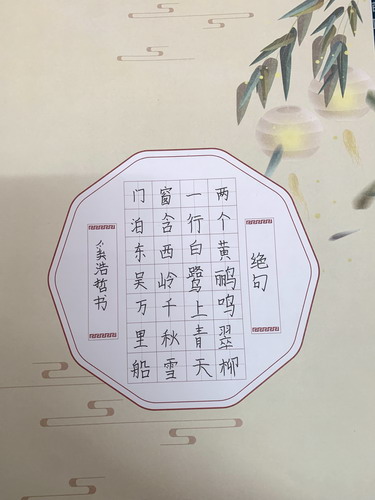 绝句
两个黄鹂鸣翠柳
一行白鹭上青天
窗含西岭千秋雪
门泊东吴万里船
浩哲书